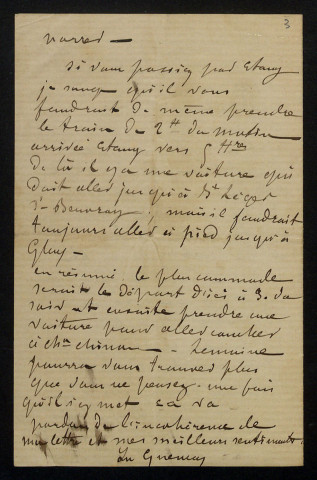 3
si vous passiez par Etang
je songe qu'il vous
faudrait de même prendre
le train de 2h du matin
arrivée Etang vers 5 hres
De là il y a une voiture qui
doit aller jusqu'à St Léger
s/ Beuvray, mais il faudrait
toujours aller à pied jusqu'à
Glux -
en résumé le plus commode
serait le départ d'ici à 3. du
soir et ensuite prendre une
voiture pour aller coucher
à chau chinon -
pourra vous trouver plus
que vous ne pensez. une fois
qu'il s'y met ça va
pardon de l'incohérence de
ma lettre et mes meilleurs sentiments